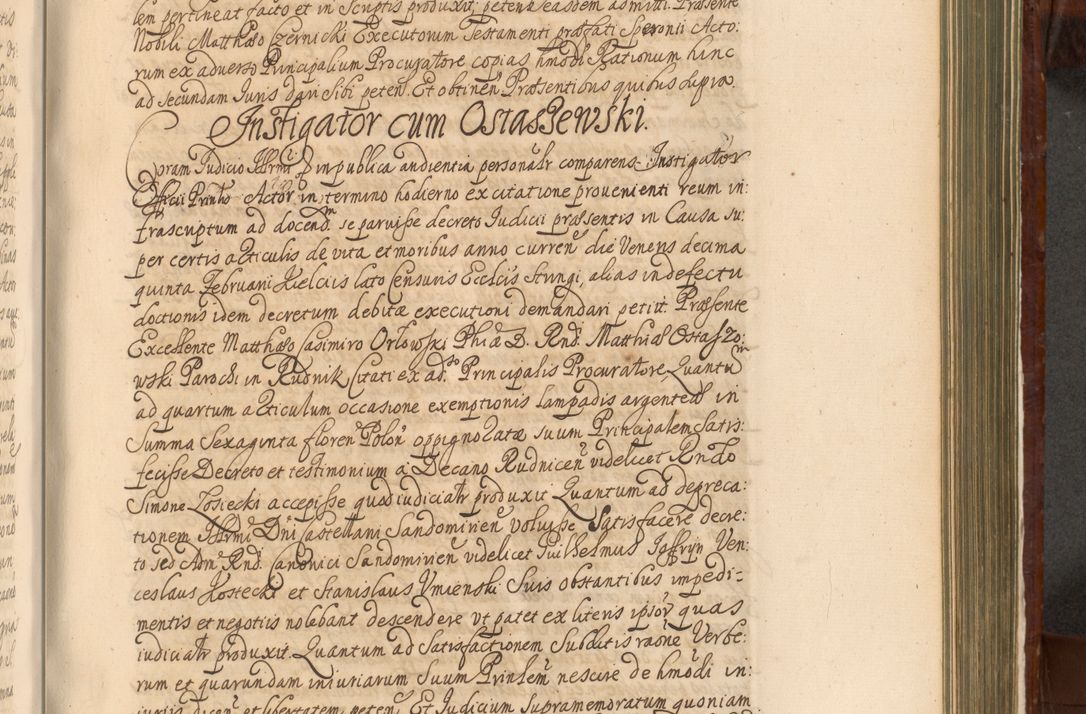 lem pertineat facto et in Scriptis produxit, petens eassem admitti. Præsente
Nobili Matthæo Czernicki Executorum Testamenti præfati Speronii Acto:
rum ex adverso Principalium Procuratore copias hmōdi Rationum hinc
ad secundam Iuris dari sibi peten. Et obtinen. Præsentibus quibus supra.
Instigator cum Ostaszewski.
Coram Judicio Illrmi P in publica audientia personalr comparens Instigator
Officii Prntis Actor in termino hodierno ex citatione provenienti reum in:
frascriptum ad docend. se paruisse decreto Iudicii præsentis in Causa su:
per certis articulis de vita et moribus anno curren. die Veneris decima
quinta Februarii Kielciis lato Censuris Ecclcis stringi, alias in defectu
doctionis idem decretum debitæ executioni demandari petiit. Præsente
Excellente Matthæo Casimiro Orłowski Phiæ D. Rnd. Matthiæ Ostaszo:
wski Parochi in Rudnik Citati ex ad.so Principalis Procuratore, Quantu
ad quartum articulum occasione exemptionis lampadis argenteæ in
Summa Sexaginta floren. Polon. oppignoratæ suum Principalem satis:
fecisse Decreto et testimonium a Decano Rudnicen. videlicet Rndo
Simone Łosiecki accepisse quod iudicialr produxit Quantum ad depreca:
tionem Illrmi Dni Castellani Sandomirien. voluisse satisfacere decre:
to sed Adm. Rnd. Canonici Sandomirien. videlicet Guilhelmus Joffryn Ven:
ceslaus Kostecki et Stanislaus Umienski Suis obstantibus impedi=
mentis et negotiis nolebant descendere vt patet ex literis ipsor. quas
iudicialr produxit. Quantum ad Satisfactionem Subditis raōne Verbe:
rum et quarundam iniuriarum Suum Prinlem nescire de hmōdi in:
iuriis dicen. et libertatem peten. Et Iudicium Supramemoratum quoniam